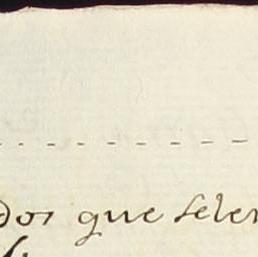 dos que selen